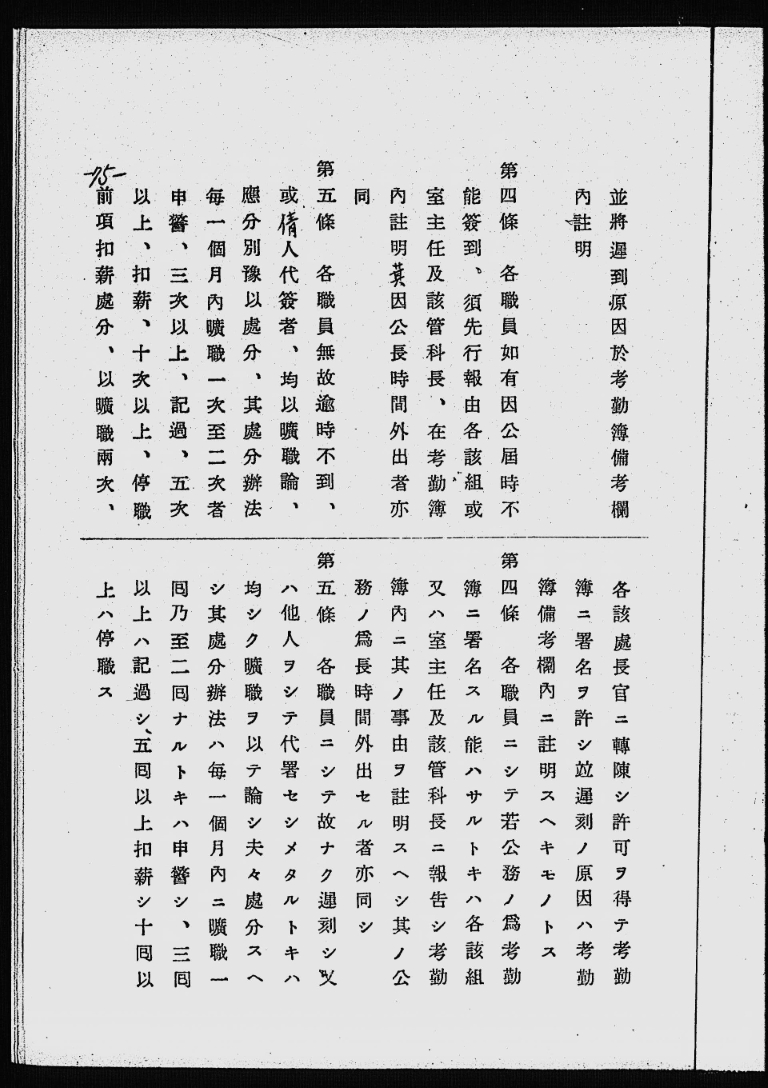 並將遲到原因於考勤簿備考欄
內註明
第四條　各職員如有因公屆時不
能簽到、須先行報由各該組或
室主任及該管科長、在考勤簿
內註明其因公長時間外出者亦
同
第五條　各職員無故逾時不到、
或倩人代簽者、均以曠職論、
應分別豫以處分、其處分辦法
每一個月內曠職一次至二次者
申警、三次以上、記過、五次
以上、扣薪、十次以上、停職
前項扣薪處分、以曠職兩次、
-75-
各該處長官ニ轉陳シ許可ヲ得テ考勤
簿ニ署名ヲ許シ竝遲刻ノ原因ハ考勤
簿備考欄內ニ註明スヘキモノトス
第四條　各職員ニシテ若公務ノ爲考勤
簿ニ署名スル能ハサルトキハ各該組
又ハ室主任及該管科長ニ報告シ考勤
簿內ニ其ノ事由ヲ註明スヘシ其ノ公
務ノ爲長時間外出セル者亦同シ
第五條　各職員ニシテ故ナク遲刻シ又
ハ他人ヲシテ代署セシメタルトキハ
均シク曠職ヲ以テ論シ夫々處分スヘ
シ其處分辦法ハ每一個月內ニ曠職一
囘乃至二囘ナルトキハ申警シ、三囘
以上ハ記過シ、五囘以上扣薪シ十囘以
上ハ停職ス